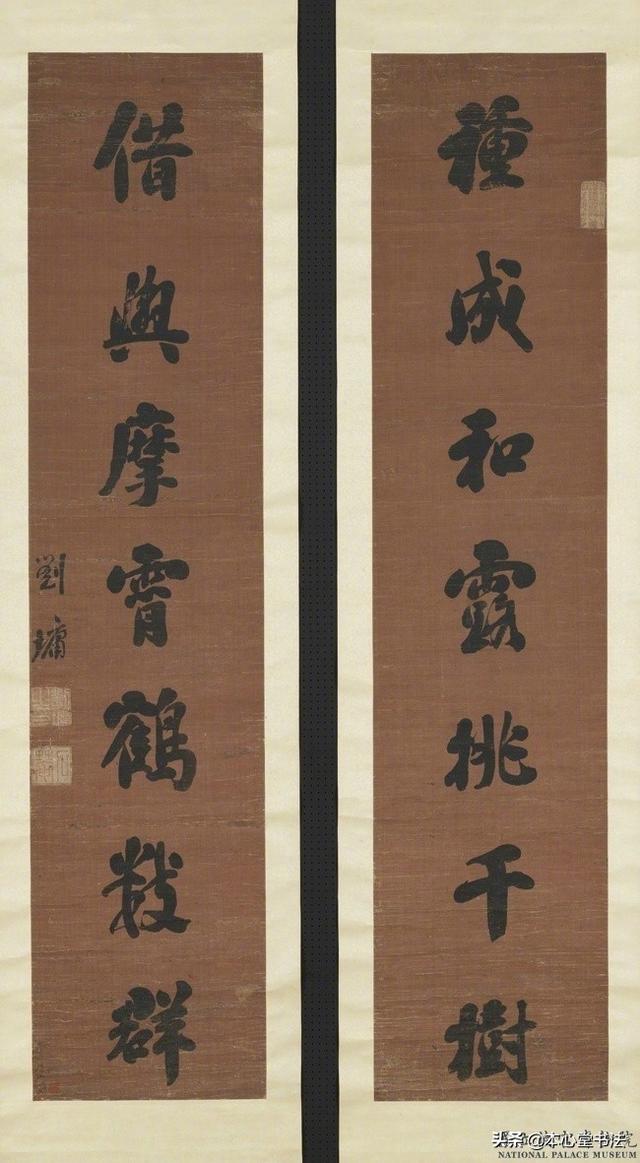 種成和露桃千樹
借與摩霄鶴數群
劉墉
头条@本心堂书法
NATIONAL PALACE MUSEUM